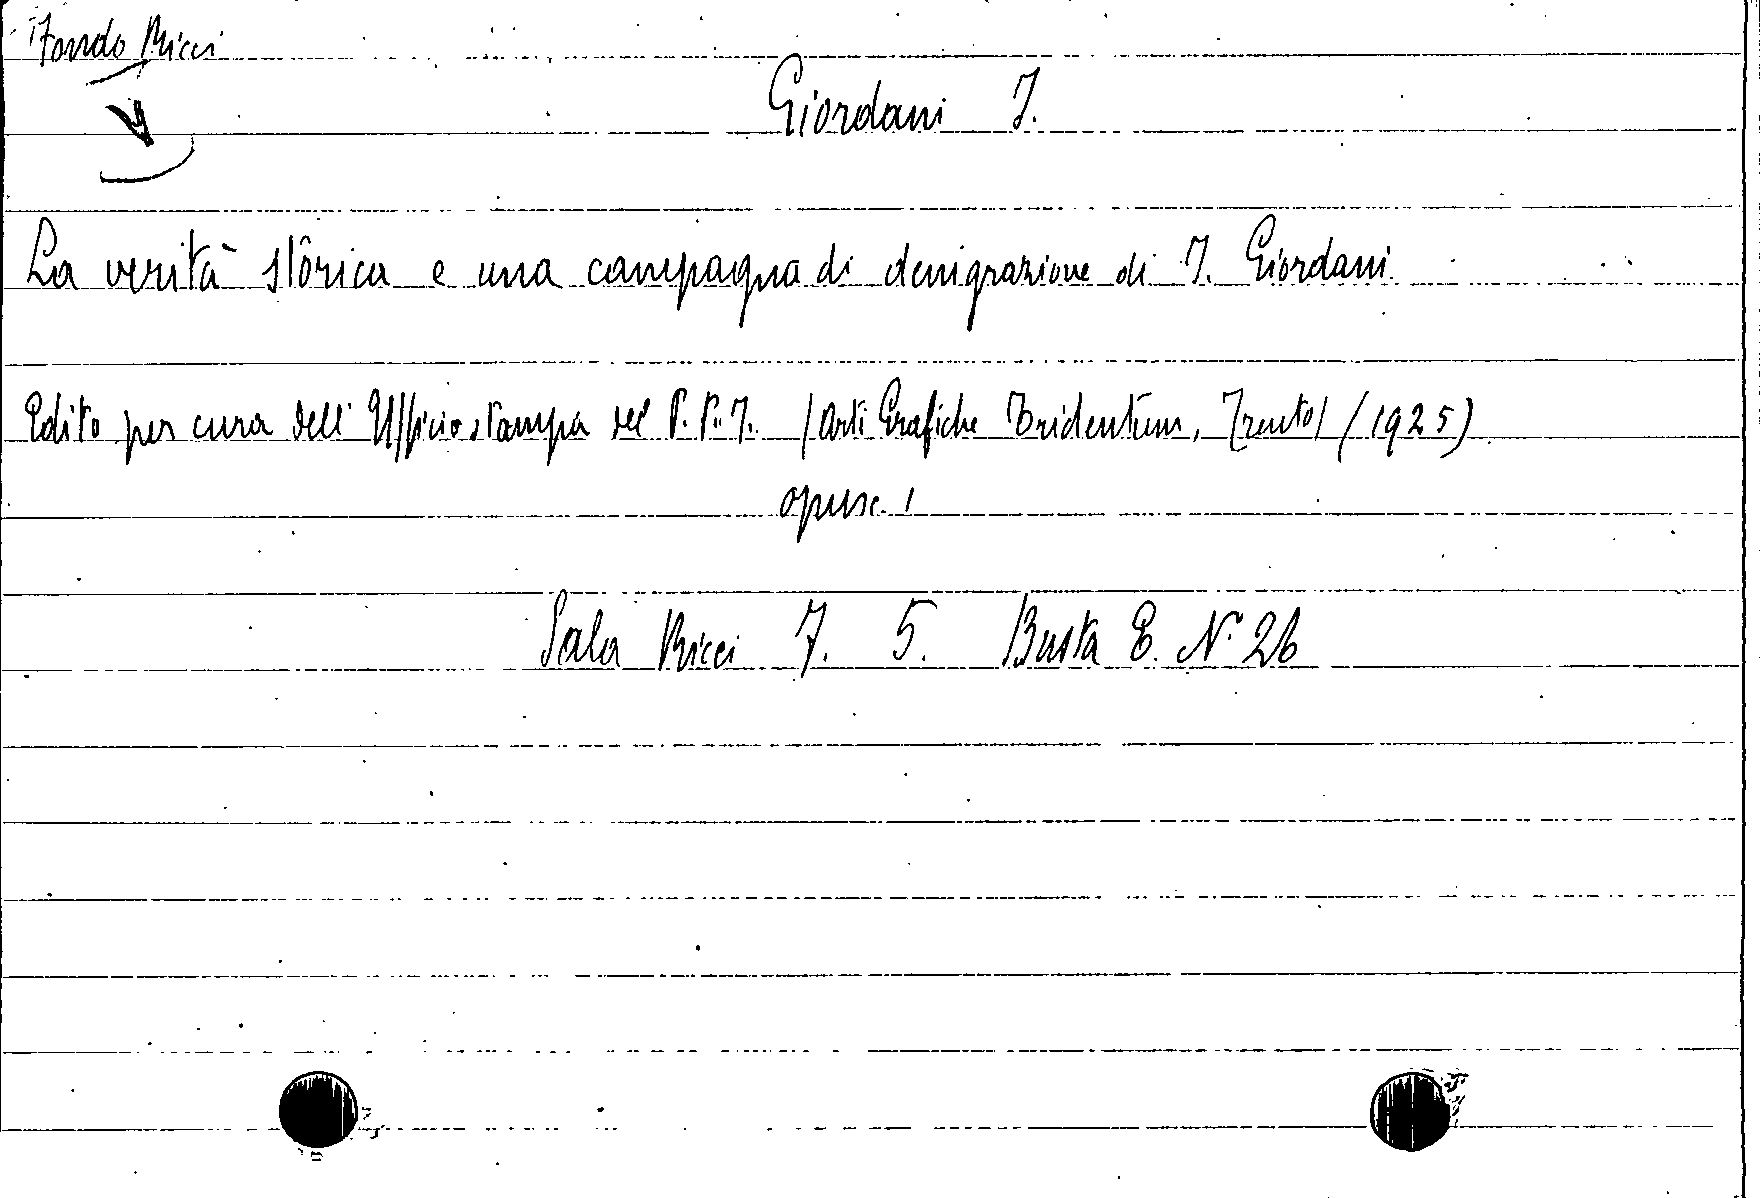 Fondo Ricci
Giordani I.
La verità storica e una campagna di denigrazione di I. Giordani
Edito per cura dell'Ufficio stampa del P.P.I. (Arti Grafiche Tridentum, Trento) (1925)
opusc. 1
Sala Ricci 7. 5. Busta E. N. 26